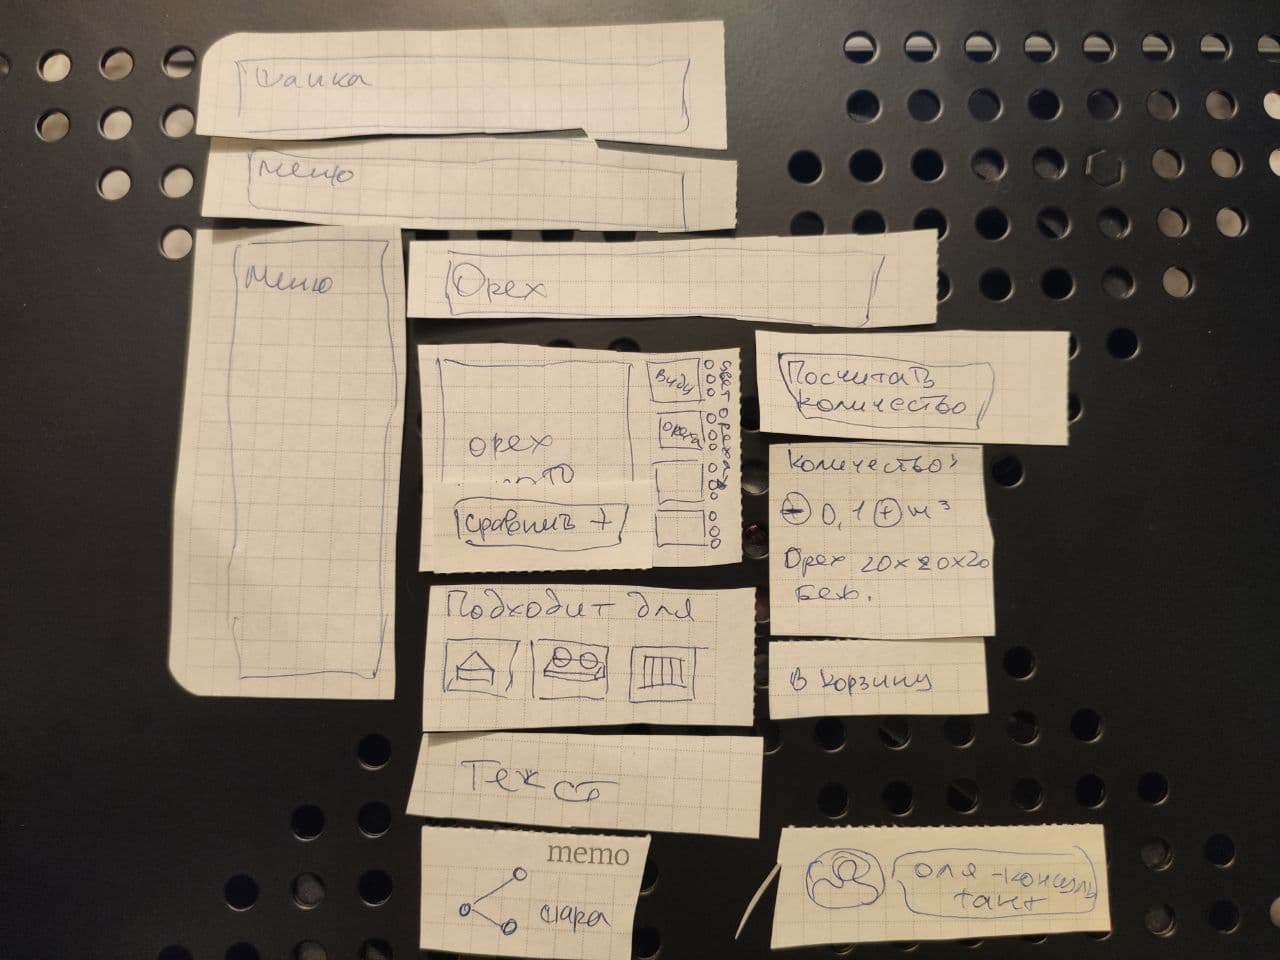 Шапка
Меню
Меню
Орех
орех
Сравнить +
Виды
Ореха
цвет ореха
Посчитать
количество
Количество:
0,1 + м³
Орех 20х20х20
Беж.
В корзину
Подходит для
Текст
memo
шара
Оля - консуль
тант